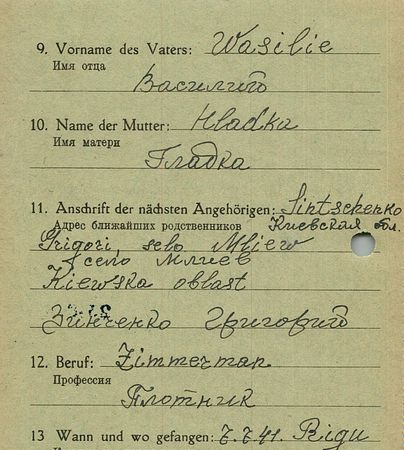 9. Vorname des Vaters: Wasilie
Имя отца
Василий
10. Name der Mutter: Hladka
Имя матери
Гладка
11. Anschrift der nächsten Angehörigen: Sintschenko
Адрес ближайших родственников Киевская обл.
Grigori, selo Mliew
село Млиев
Kiewska oblast
Зинченко Григорий
12. Beruf: Zimmerman
Профессия
Плотник
13 Wann und wo gefangen: 7.7.41. Rigu